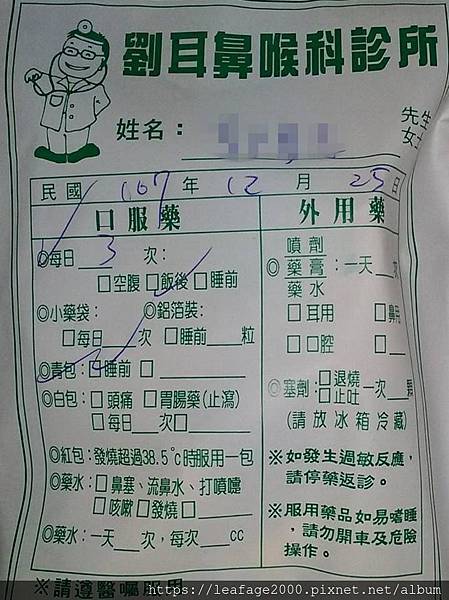 劉耳鼻喉科診所
姓名：
先生
女士
民國 107 年 12 月 25 日
口服藥
◎每日 3 次：
□空腹 □飯後 □睡前
◎小藥袋： ◎鋁箔裝：
□每日___次 □睡前___粒
◎青包：□睡前 □
◎白包：□頭痛 □胃腸藥(止瀉)
□每日___次□
◎紅包：發燒超過38.5℃時服用一包
◎藥水：□鼻塞、流鼻水、打噴嚏
□咳嗽□發燒□
◎藥水：一天___次，每次___cc
外用藥
噴劑
◎藥膏：一天___次
藥水
□耳用 □鼻用
□口腔 □
◎塞劑：□退燒 □止吐 一次
(請放冰箱冷藏)
※如發生過敏反應，
請停藥返診。
※服用藥品如易嗜睡
，請勿開車及危險
操作。
※請遵醫囑服用
https://leafage2000.pixnet.net/album